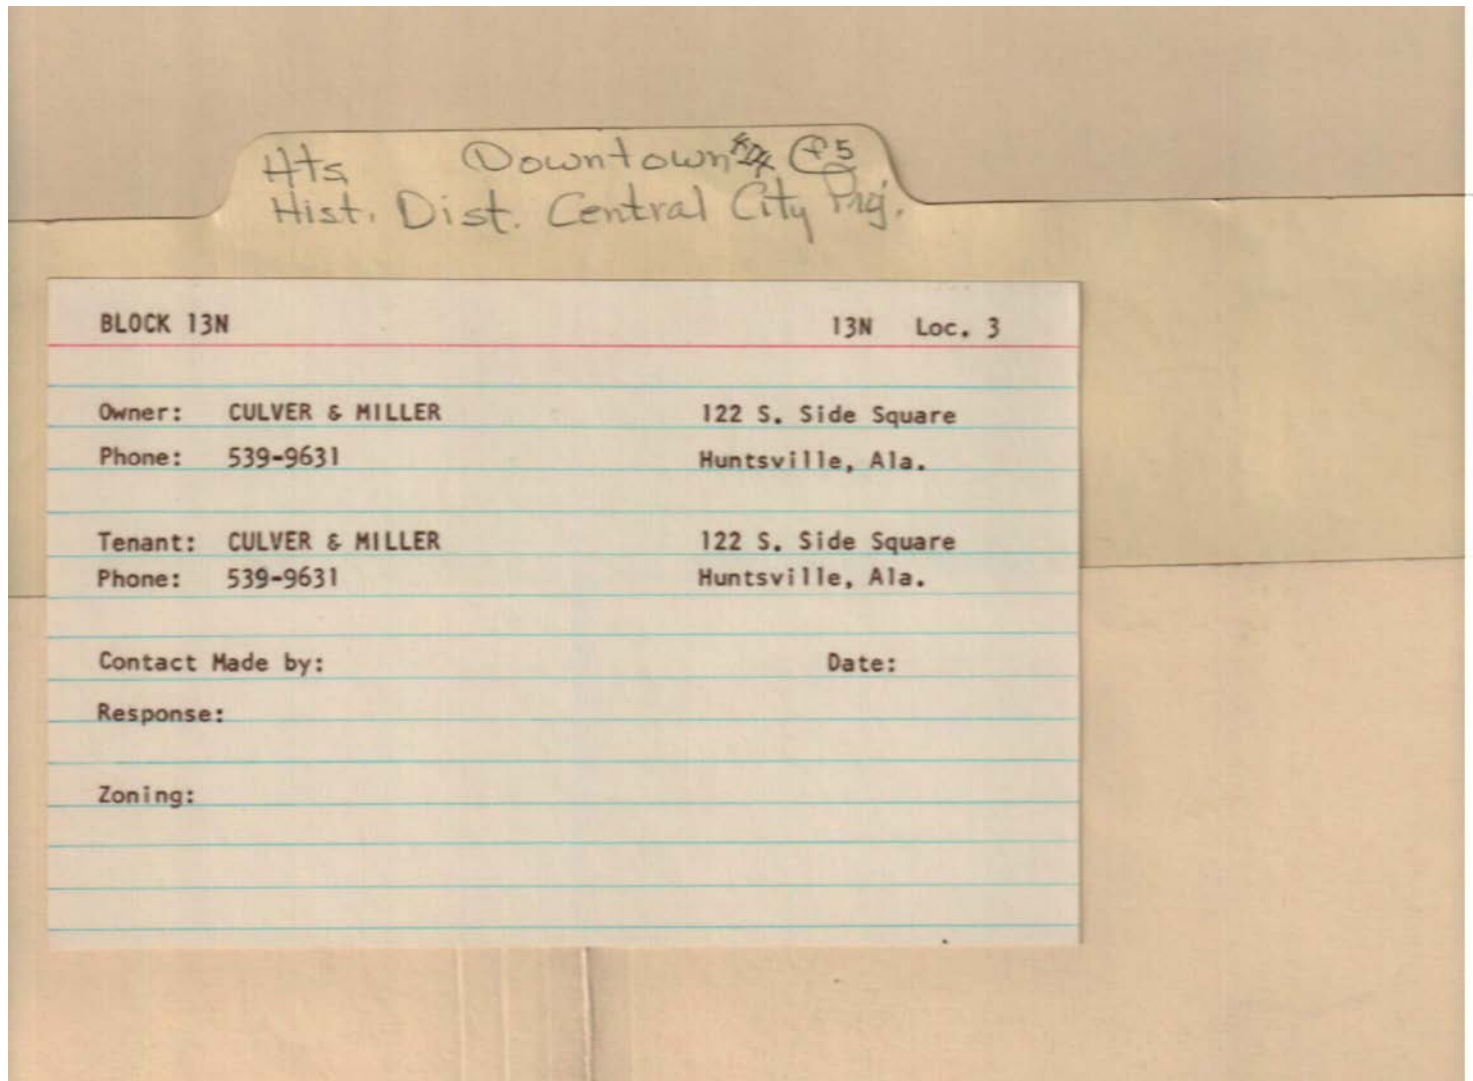 Hts Downtown P5
Hist. Dist. Central City Prj.
BLOCK 13N 13N Loc. 3
Owner: CULVER & MILLER 122 S. Side Square
Phone: 539-9631 Huntsville, Ala.
Tenant: CULVER & MILLER 122 S. Side Square
Phone: 539-9631 Huntsville, Ala.
Contact Made by: Date:
Response:
Zoning: